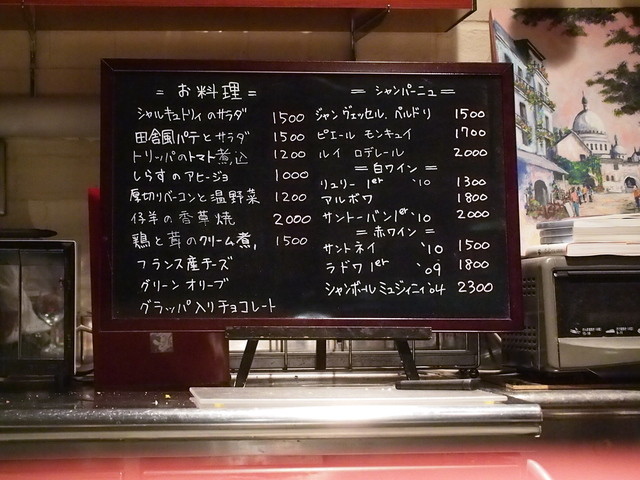 = お料理 =
シャルキュトリィのサラダ 1500
田舎風パテとサラダ 1500
トリッパのトマト煮込 1200
しらすのアヒージョ 1000
厚切りベーコンと温野菜 1200
仔羊の香草焼 2000
鶏と茸のクリーム煮 1500
フランス産チーズ
グリーン オリーブ
グラッパ入りチョコレート
= シャンパーニュ =
ジャン ヴェッセル. 1500
ピエール モンキュイ 1700
ルイ ロデレール 2000
= 白ワイン =
リュリー 1er '10 1300
アルボワ 1800
サントーバン 1er '10 2000
= 赤ワイン =
サントネイ '10 1500
ラドワ 1er '09 1800
シャンボール ミュジィニィ '04 2300